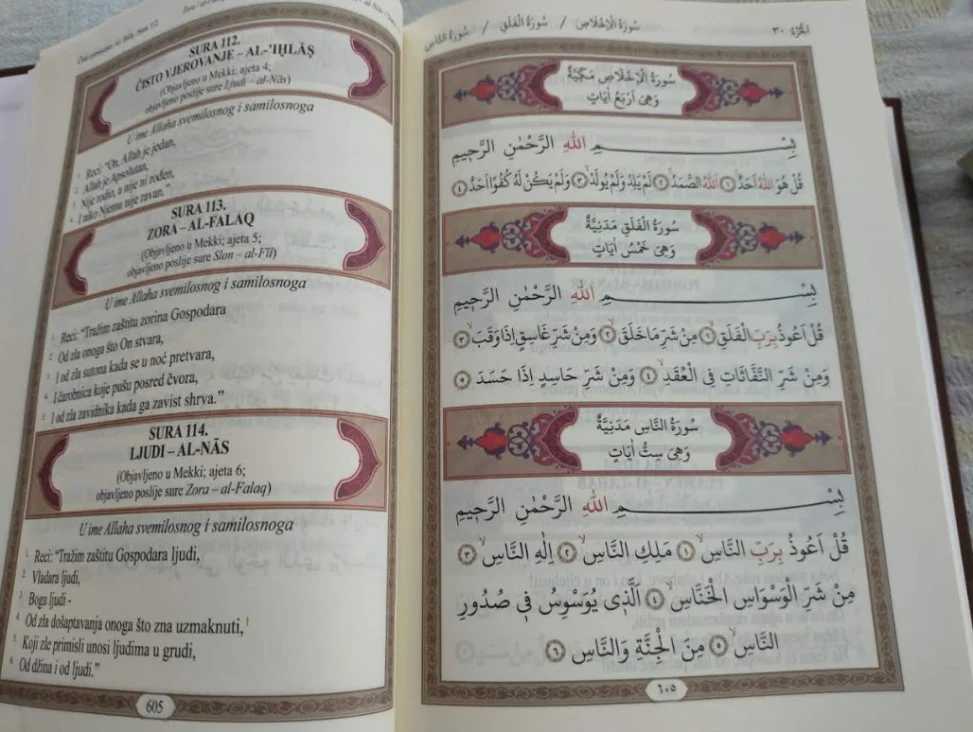 SURA 112.
ČISTO VJEROVANJE – AL-'IḪLĀṢ
(Objavljeno u Mekki; ajeta 4;
objavljeno poslije sure Ljudi – al-Nās)
U ime Allaha svemilosnog i samilosnoga
1 Reci: "On, Allah je jedan,
2 Allah je Apsolutan,
3 Nije rodio, a nije ni rođen,
4 I niko Njemu nije ravan."
SURA 113.
ZORA – AL-FALAQ
(Objavljeno u Mekki; ajeta 5;
objavljeno poslije sure Slon – al-Fīl)
U ime Allaha svemilosnog i samilosnoga
1 Reci: "Tražim zaštitu zorina Gospodara
2 Od zla onoga što On stvara,
3 I od zla sutona kada se u noć pretvara,
4 I čarobnica koje pušu posred čvora,
5 I od zla zavidnika kada ga zavist shrva."
SURA 114.
LJUDI – AL-NĀS
(Objavljeno u Mekki; ajeta 6;
objavljeno poslije sure Zora – al-Falaq)
U ime Allaha svemilosnog i samilosnoga
1 Reci: "Tražim zaštitu Gospodara ljudi,
2 Vladara ljudi,
3 Boga ljudi -
4 Od zla došaptavanja onoga što zna uzmaknuti,1
5 Koji zle primisli unosi ljudima u grudi,
6 Od džina i od ljudi."
605
الجزء ٣٠
سورة الإخلاص / سورة الفلق / سورة الناس
سُورَةُ الْاِخْلَاصِ مَكِّيَّةٌ
وَهِيَ اَرْبَعُ اٰيَاتٍ
بِسْمِ اللّٰهِ الرَّحْمٰنِ الرَّحٖيمِ
قُلْ هُوَ اللّٰهُ اَحَدٌۚ ١ اَللّٰهُ الصَّمَدُۚ ٢ لَمْ يَلِدْ وَلَمْ يُولَدْۙ ٣ وَلَمْ يَكُنْ لَهُ كُفُوًا اَحَدٌ ٤
سُورَةُ الْفَلَقِ مَدَنِيَّةٌ
وَهِيَ خَمْسُ اٰيَاتٍ
بِسْمِ اللّٰهِ الرَّحْمٰنِ الرَّحٖيمِ
قُلْ اَعُوذُ بِرَبِّ الْفَلَقِۙ ١ مِنْ شَرِّ مَا خَلَقَۙ ٢ وَمِنْ شَرِّ غَاسِقٍ اِذَا وَقَبَۙ ٣
وَمِنْ شَرِّ النَّفَّاثَاتِ فِي الْعُقَدِۙ ٤ وَمِنْ شَرِّ حَاسِدٍ اِذَا حَسَدَ ٥
سُورَةُ النَّاسِ مَدَنِيَّةٌ
وَهِيَ سِتُّ اٰيَاتٍ
بِسْمِ اللّٰهِ الرَّحْمٰنِ الرَّحٖيمِ
قُلْ اَعُوذُ بِرَبِّ النَّاسِۙ ١ مَلِكِ النَّاسِۙ ٢ اِلٰهِ النَّاسِۙ ٣
مِنْ شَرِّ الْوَسْوَاسِ الْخَنَّاسِۙ ٤ اَلَّذٖي يُوَسْوِسُ فٖي صُدُورِ
النَّاسِۙ ٥ مِنَ الْجِنَّةِ وَالنَّاسِ ٦
٦٠٥